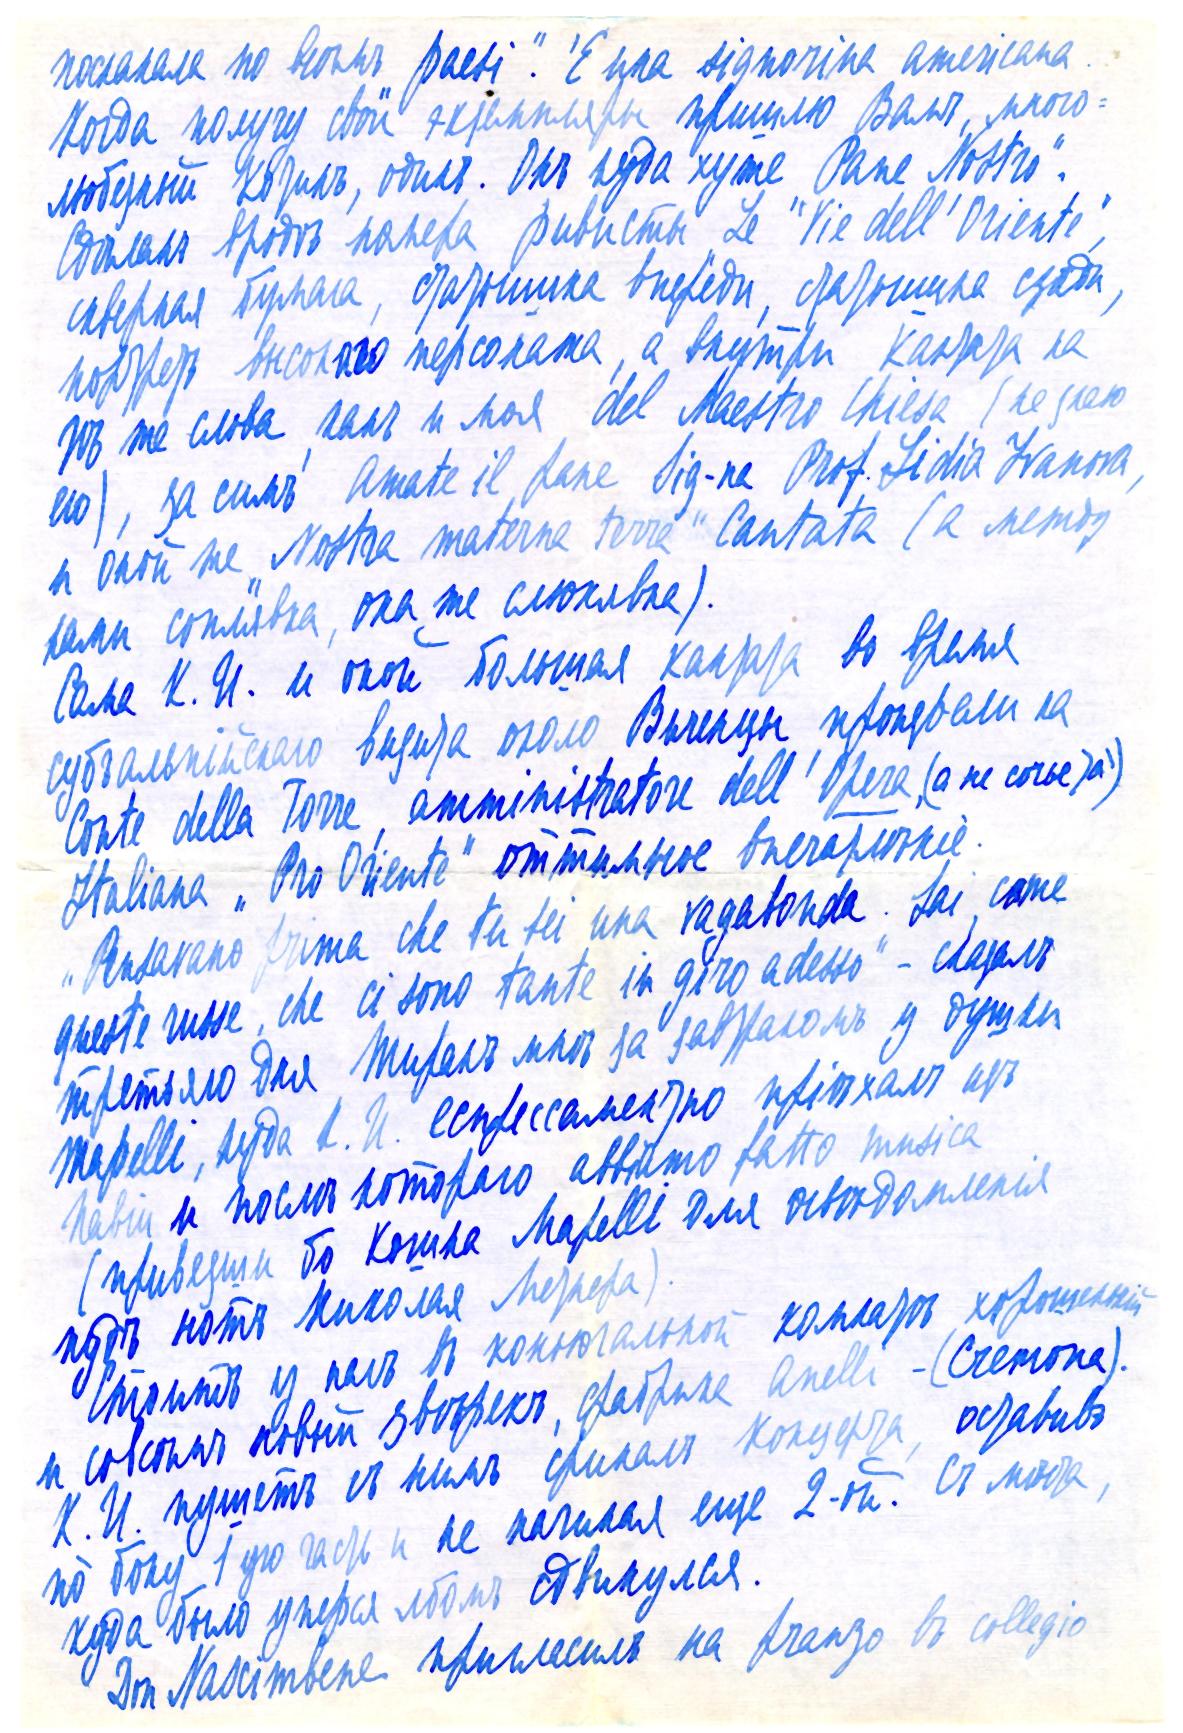 поскакала по всѣмъ paesi". "È una signorina americana.
Когда получу свои экземпляры пришлю Вамъ, много=
любезный Котикъ, одинъ. Онъ куда хуже „Pane Nostro".
Сдѣланъ вродѣ номера ривисты „Le "Vie dell' Oriente",
скверная бумага, статошина впереди, статошина сзади,
портретъ высокаго персонажа, а внутри кантата на
тѣ же слова, какъ и моя del Maestro Chiesa (не знаю
его), за симъ Amate il pane Sig-na Prof. Lidia Ivanova,
и оной же „Nostra materna terra" Cantata (а между
нами соплявка, она же слюнявка).
Сама К. И. и оной большая кантата во время
субъальпійскаго визита около Виченцы произвели на
Conte della Torre, amministratore dell' Opera, (а не
Italiana „Pro Oriente" оттимное впечатлѣніе.
„Pensavano prima che tu sei una vagabonda. Sai, come
queste russe, che ci sono tante in giro adesso" – сказалъ
третьяго дня Жиранъ мнѣ за завтракомъ у душки
Mapelli, куда К. И. еспрессаменто пріѣхалъ изъ
Павіи и послѣ котораго abbiamo fatto musica
(привезши бо Кошка Mapelli для освѣдомленія
пудъ нотъ Николая Метнера).
Стоитъ у насъ въ конъюгальной камерѣ хорошенькій
и совсѣмъ новый звѣрекъ, фабрика Anelli – (Cremona).
К. И. пишетъ съ нимъ финалъ концерта, оставивъ
по боку 1ую часть и не начиная еще 2-ой. Съ мѣста,
куда было уперся лбомъ сдвинулся.
Don Nascimbene пригласилъ на pranzo въ collegio